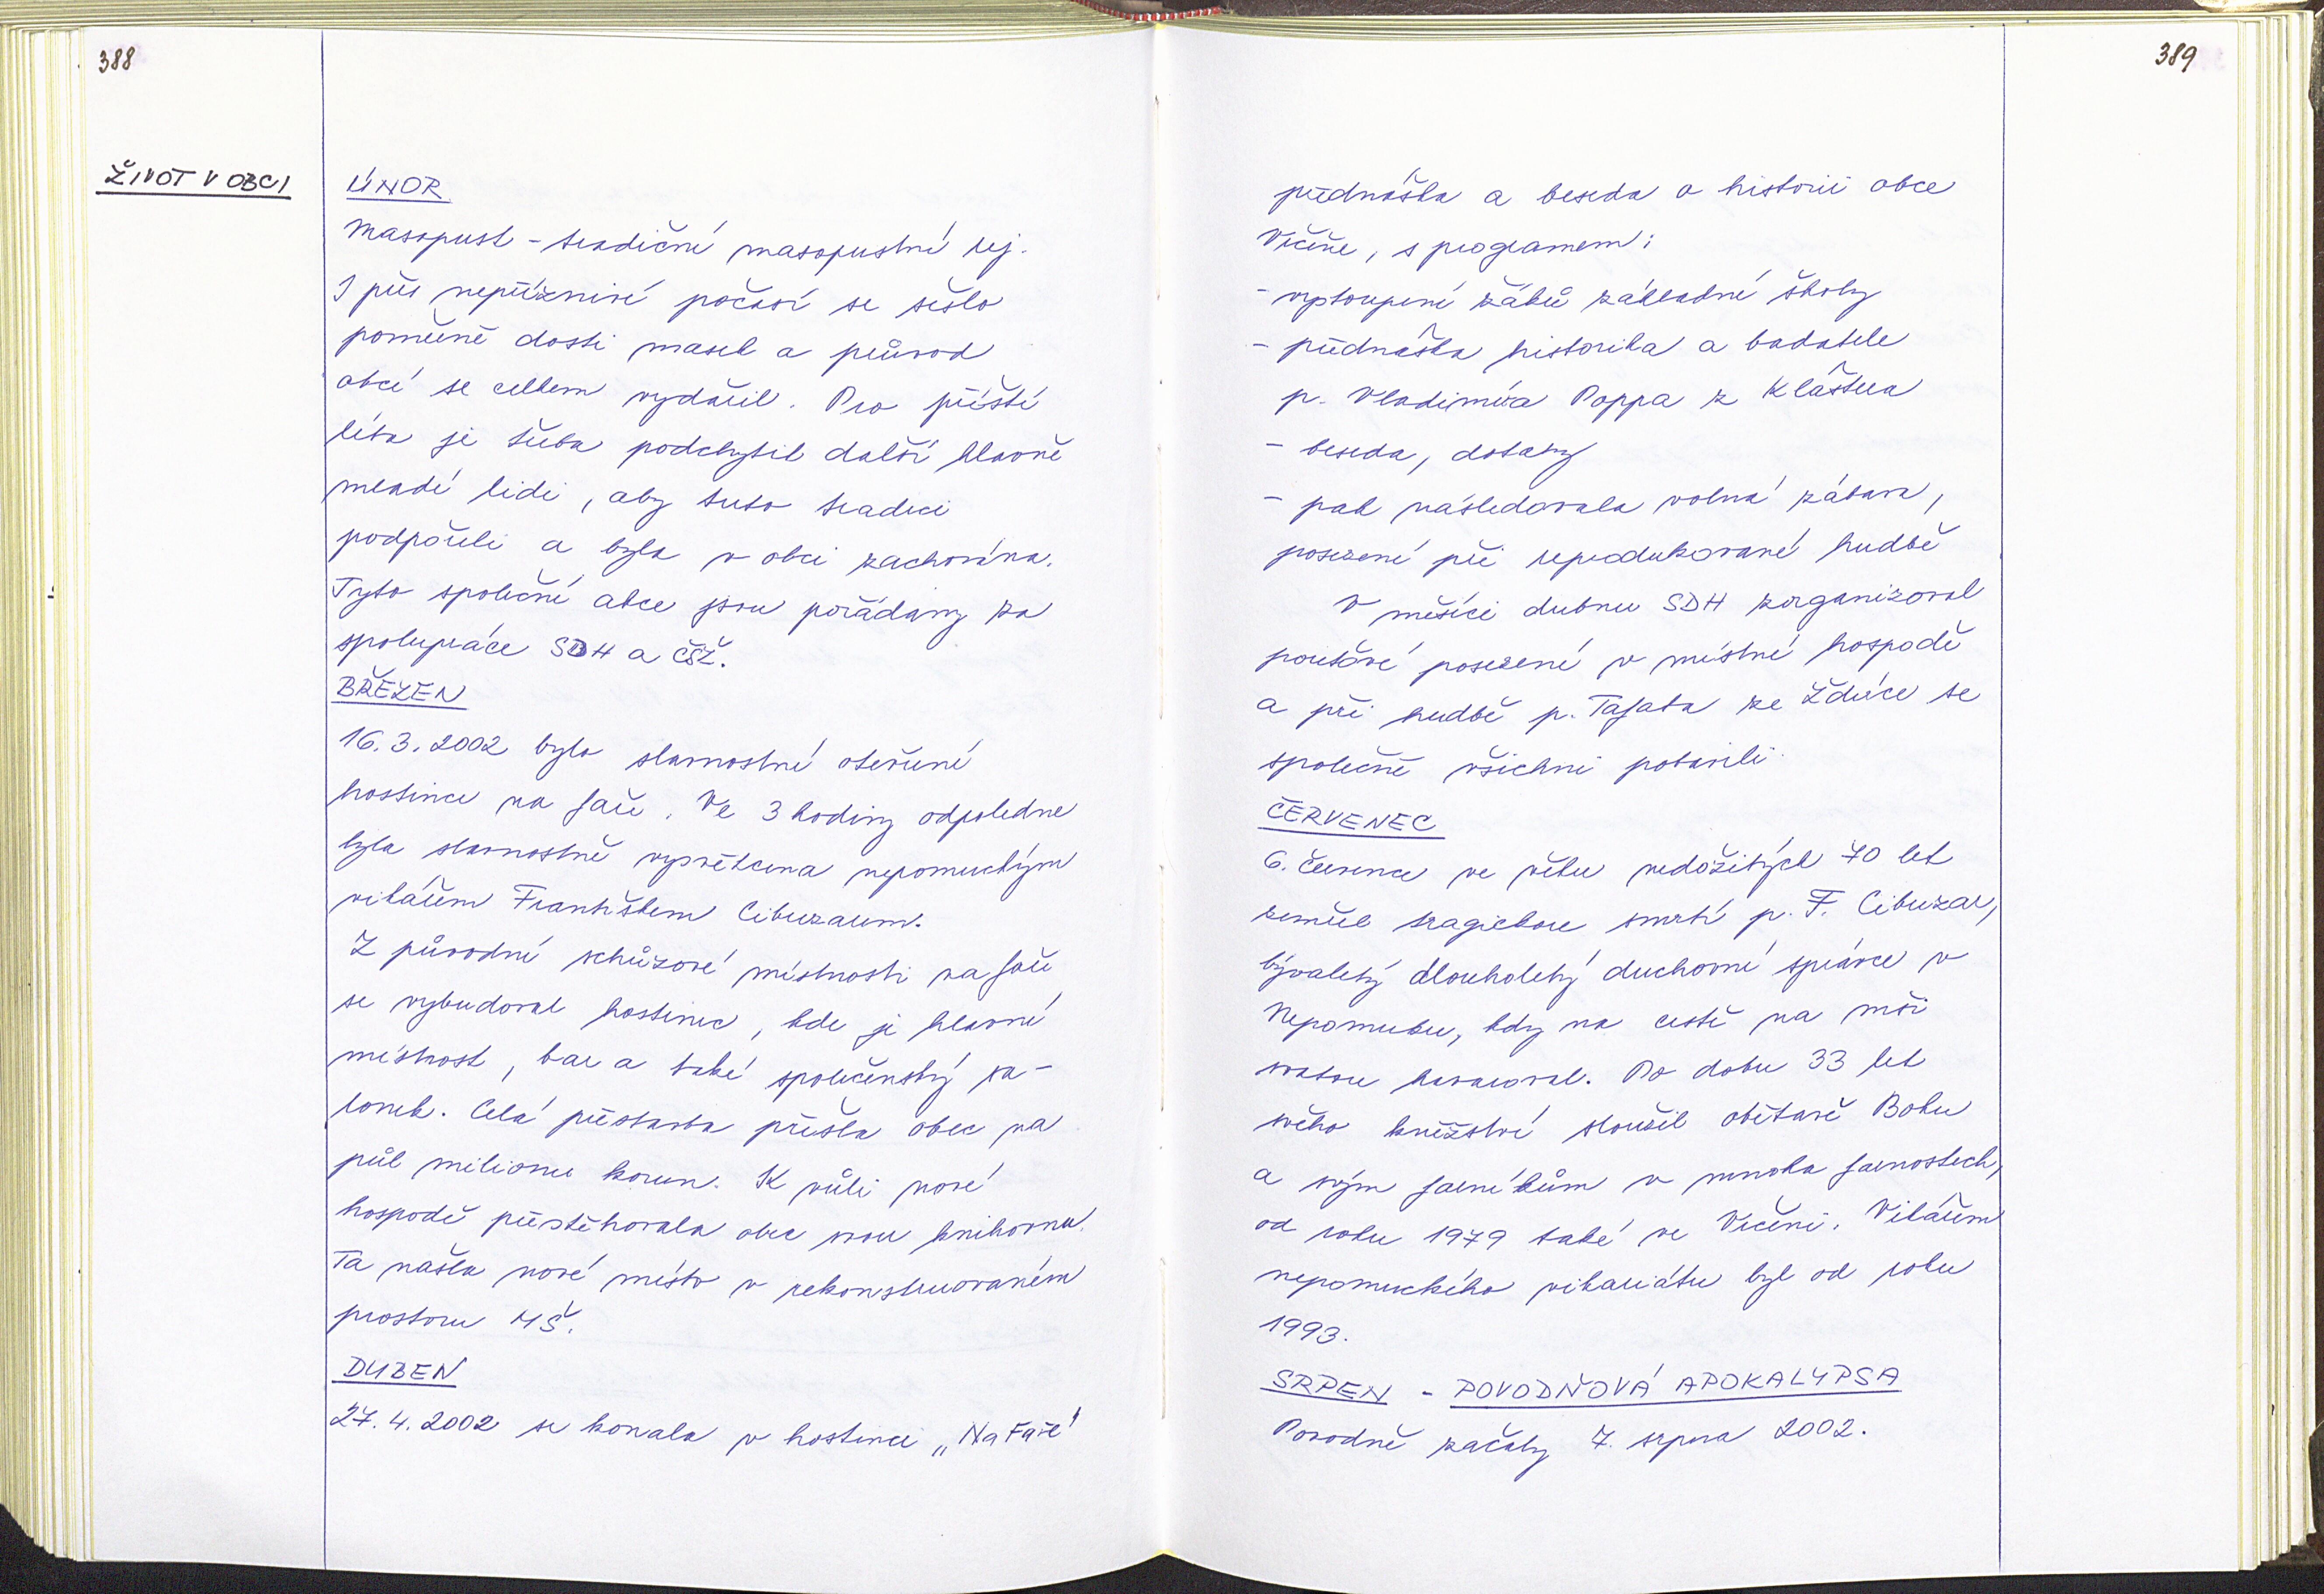 388
ŽIVOT V OBCI
ÚNOR
Masopust - tradiční masopustní rej.
I přes nepříznivé počasí se sešlo
poměrně dosti masek a průvod
obcí se celkem vydařil. Pro příští
léta je třeba podchytit další hlavně
mladé lidi, aby tuto tradici
podpořili a byla v obci zachována.
Tyto společné akce jsou pořádány za
spolupráce SDH a ČSŽ.
BŘEZEN
16.3.2002 bylo slavnostní otevření
hostince na faře. Ve 3 hodiny odpoledne
byla slavnostně vysvěcena nepomuckým
vikářem Františkem Cibuzarem.
Z původní schůzové místnosti na faře
se vybudoval hostinec, kde je hlavní
místnost, bar a také společenský sa-
lonek. Celá přestavba přišla obec na
půl milionu korun. K vůli nové
hospodě přestěhovala obec svou knihovnu.
Ta našla nové místo v rekonstruovaném
prostoru MŠ.
DUBEN
27.4.2002 se konala v hostinci „Na Faře"
389
přednáška a beseda o historii obce
Vrčeně, s programem:
- vystoupení žáků základní školy
- přednáška historika a badatele
p. Vladimíra Poppa z Kláštera
- beseda, dotazy
- pak následovala volná zábava,
posezení při reprodukované hudbě
V měsíci dubnu SDH zorganizoval
pouťové posezení v místní hospodě
a při hudbě p. Tafata ze Ždírce se
společně všichni pobavili.
ČERVENEC
6. července ve věku nedožitých 70 let
zemřel tragickou smrtí p. F. Cibuzar,
bývaletý dlouholetý duchovní správce v
Nepomuku, kdy na cestě na mši
svatou havaroval. Po dobu 33 let
svého kněžství sloužil obětavě Bohu
a svým farníkům v mnoha farnostech,
od roku 1979 také ve Vrčeni. Vikářem
nepomuckého vikariátu byl od roku
1993.
SRPEN - POVODŇOVÁ APOKALYPSA
Povodně začaly 7. srpna 2002.